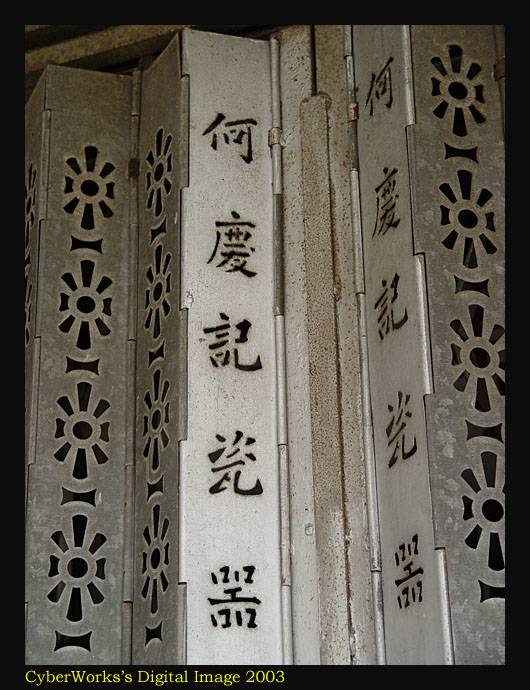 何慶記瓷噐
何慶記瓷噐
CyberWorks's Digital Image 2003